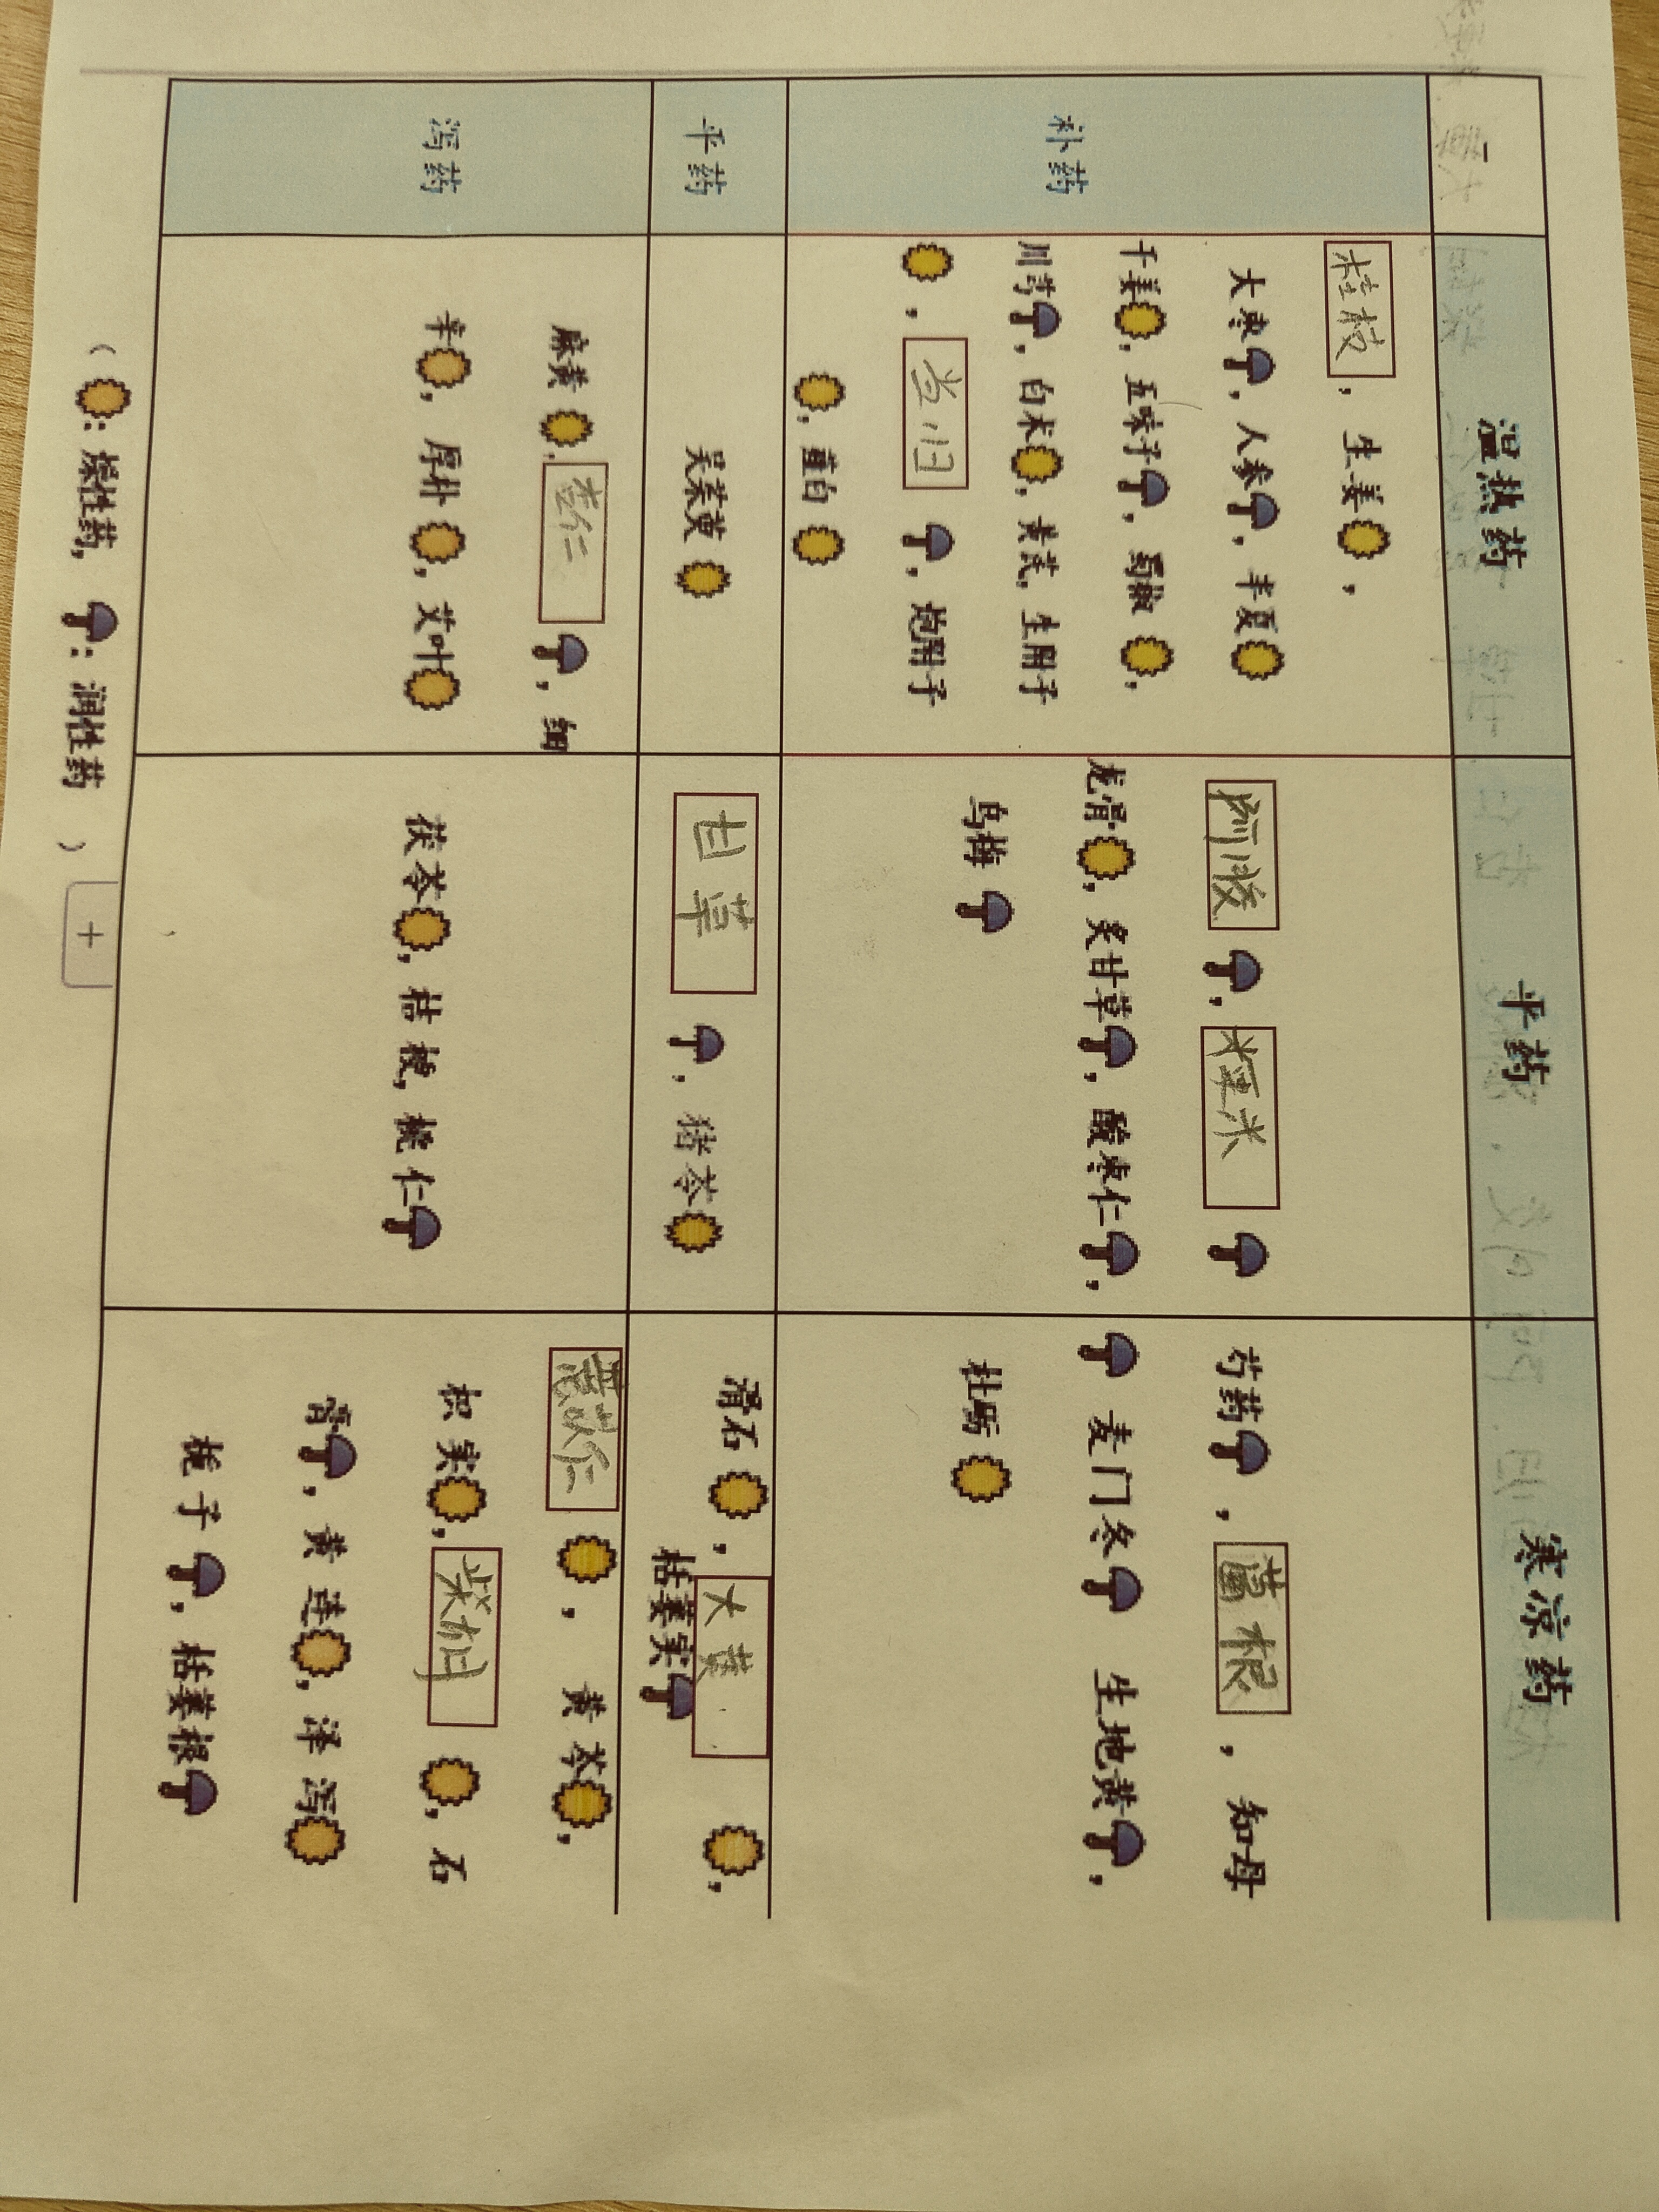 温热药 平药 寒凉药
补药
桂枝，生姜，
大枣，人参，半夏
干姜，五味子，蜀椒，
川芎，白术，黄芪，生附子
，当归，炮附子
，薤白
阿胶，粳米
龙骨，炙甘草，酸枣仁，
乌梅
芍药，葛根，知母
麦门冬 生地黄，
牡蛎
平药
吴茱萸
甘草，猪苓
滑石，大黄，
栝蒌实
泻药
麻黄，杏仁，细
辛，厚朴，艾叶
茯苓，桔梗，桃仁
薏苡仁，黄芩，
枳实，柴胡，石
膏，黄连，泽泻
栀子，栝蒌根
（：燥性药，：润性药）
+